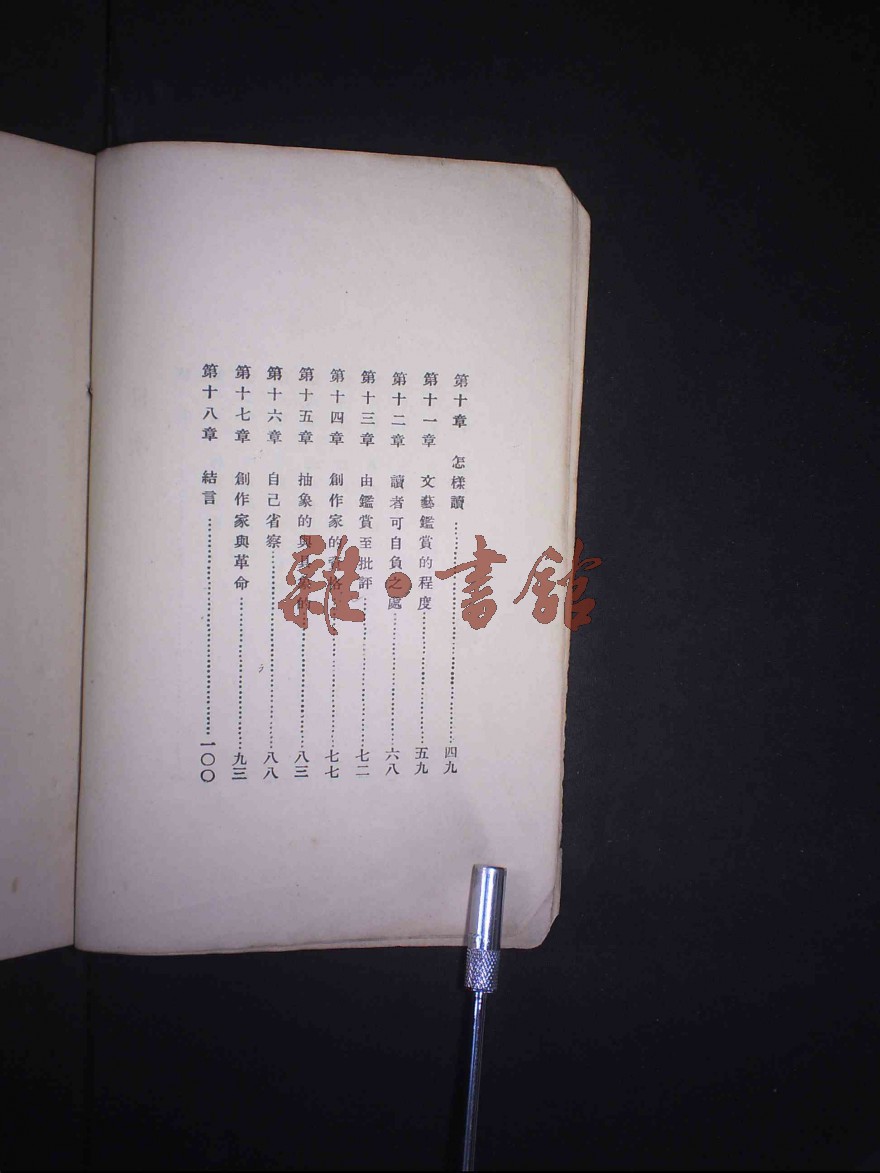 第十章 怎樣讀……四九
第十一章 文藝鑑賞的程度……五九
第十二章 讀者可自負之處……六八
第十三章 由鑑賞至批評……七二
第十四章 創作家的資格……七七
第十五章 抽象的與具象的……八三
第十六章 自己省察……八八
第十七章 創作家與革命……九三
第十八章 結言……一〇〇
雜·書館